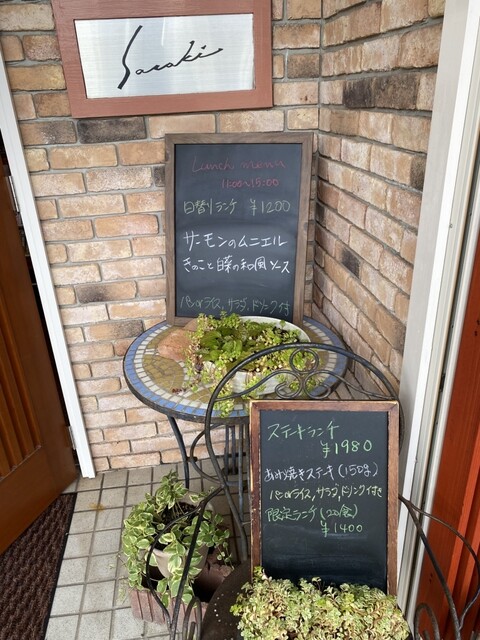 Sasaki
Lunch menu
11:00~15:00
日替りランチ ¥1200
サーモンのムニエル
きのこと白菜の和風ソース
パンorライス,サラダ,ドリンク付
ステーキランチ
¥1980
あみ焼きステーキ(150g)
パンorライス,サラダ,ドリンク付き
限定ランチ(20食)
¥1400